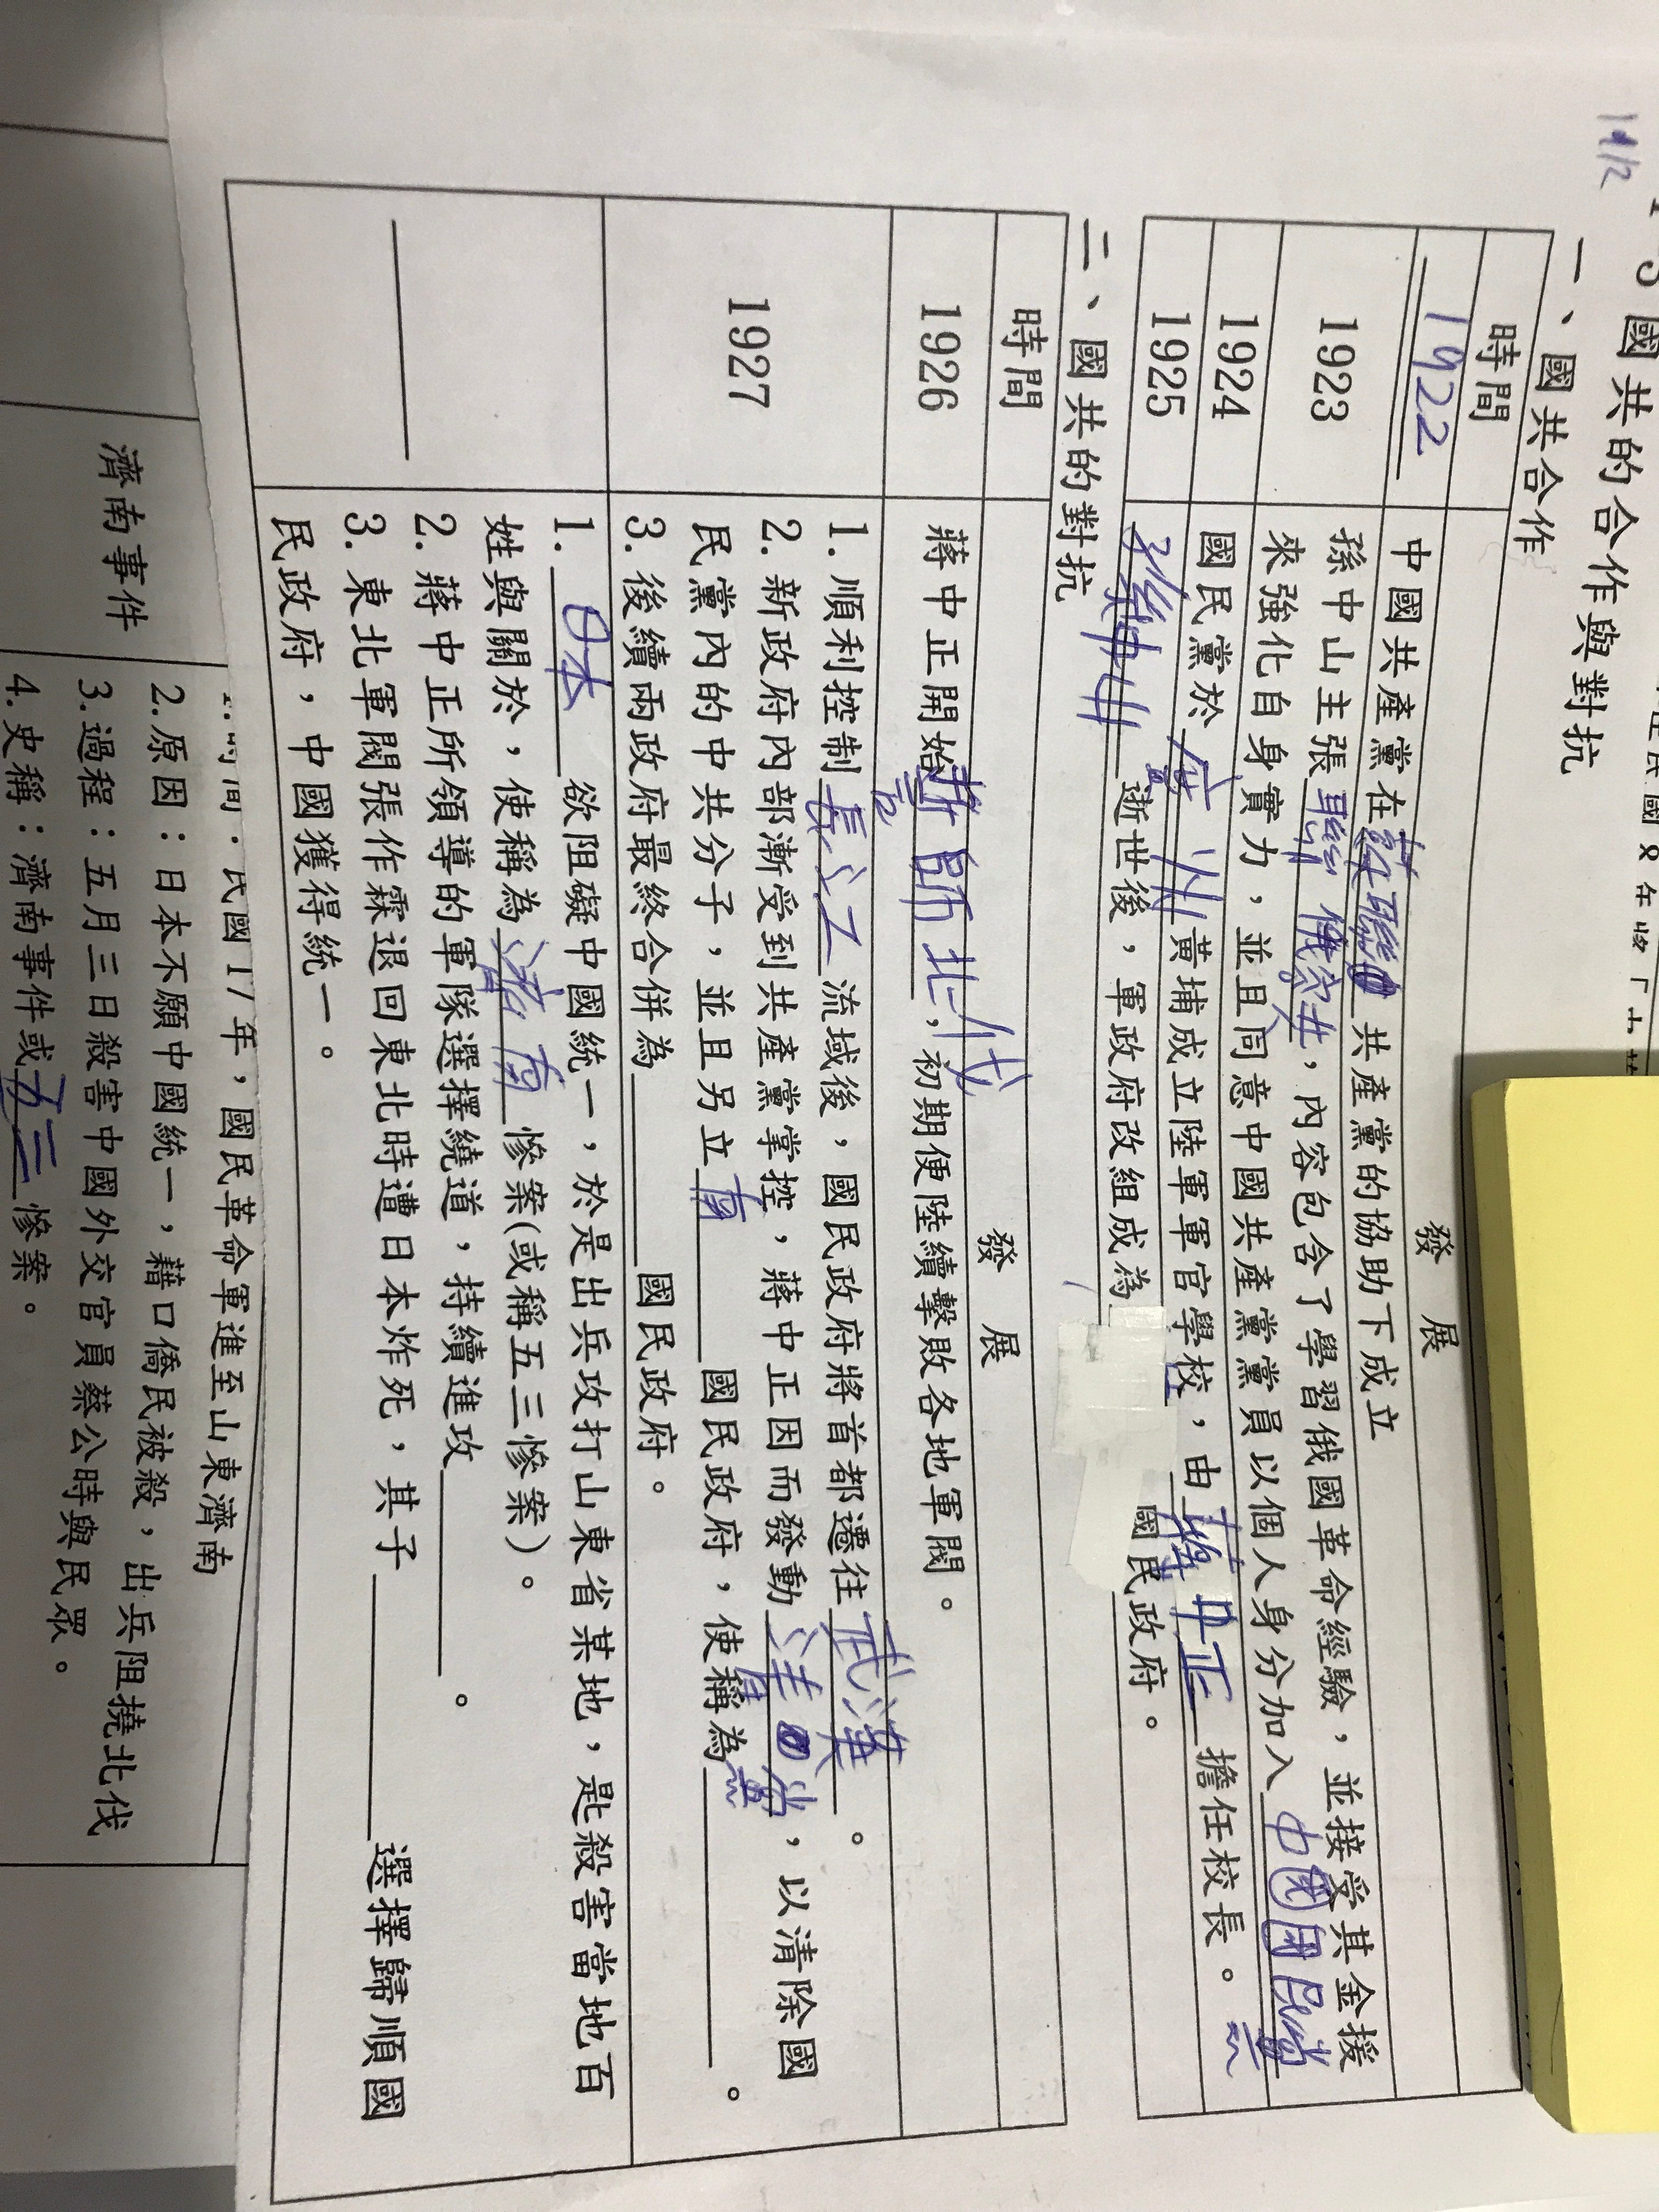 11/2
3 國共的合作與對抗
一、國共合作
時間 發展
1922 中國共產黨在蘇聯共產黨的協助下成立
1923 孫中山主張聯俄容共，內容包含了學習俄國革命經驗，並接受其金援
來強化自身實力，並且同意中國共產黨黨員以個人身分加入中國國民黨
1924 國民黨於廣州黃埔成立陸軍軍官學校，由蔣中正擔任校長。
1925 孫中山逝世後，軍政府改組成為 國民政府。
二、國共的對抗
時間 發展
1926 蔣中正開始誓師北伐，初期便陸續擊敗各地軍閥。
1927
1.順利控制長江流域後，國民政府將首都遷往武漢。
2.新政府內部漸受到共產黨掌控，蔣中正因而發動清黨，以清除國
民黨內的中共分子，並且另立南國民政府，使稱為。
3.後續兩政府最終合併為國民政府。
1.日本欲阻礙中國統一，於是出兵攻打山東省某地，是殺害當地百
姓與關於，使稱為濟南慘案(或稱五三慘案)。
2.蔣中正所領導的軍隊選擇繞道，持續進攻。
3.東北軍閥張作霖退回東北時遭日本炸死，其子選擇歸順國
民政府，中國獲得統一。
濟南事件
1.時間：民國17年，國民革命軍進至山東濟南
2.原因：日本不願中國統一，藉口僑民被殺，出兵阻撓北伐
3.過程：五月三日殺害中國外交官員蔡公時與民眾。
4.史稱：濟南事件或五三慘案。